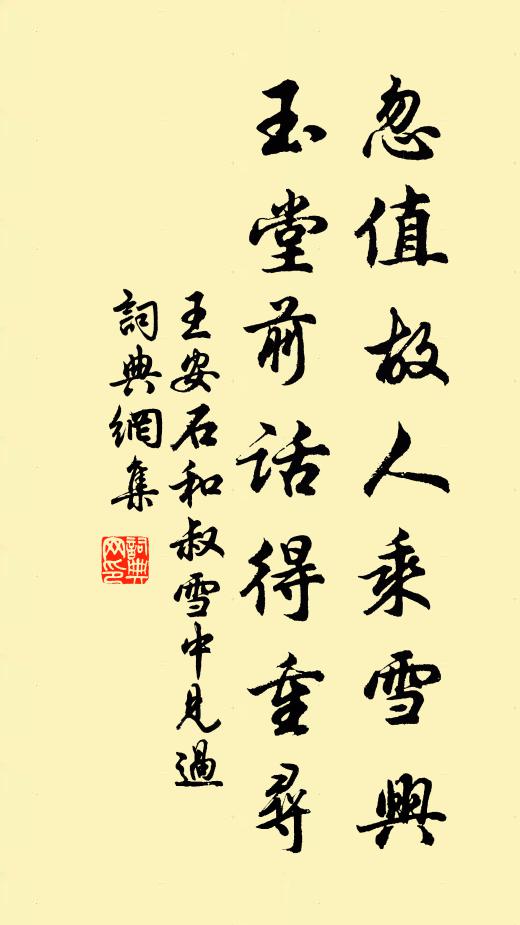 忽值故人乘雪興
玉堂前話得重尋
王安石和叔雪中見過
詞典網集
詞典网印